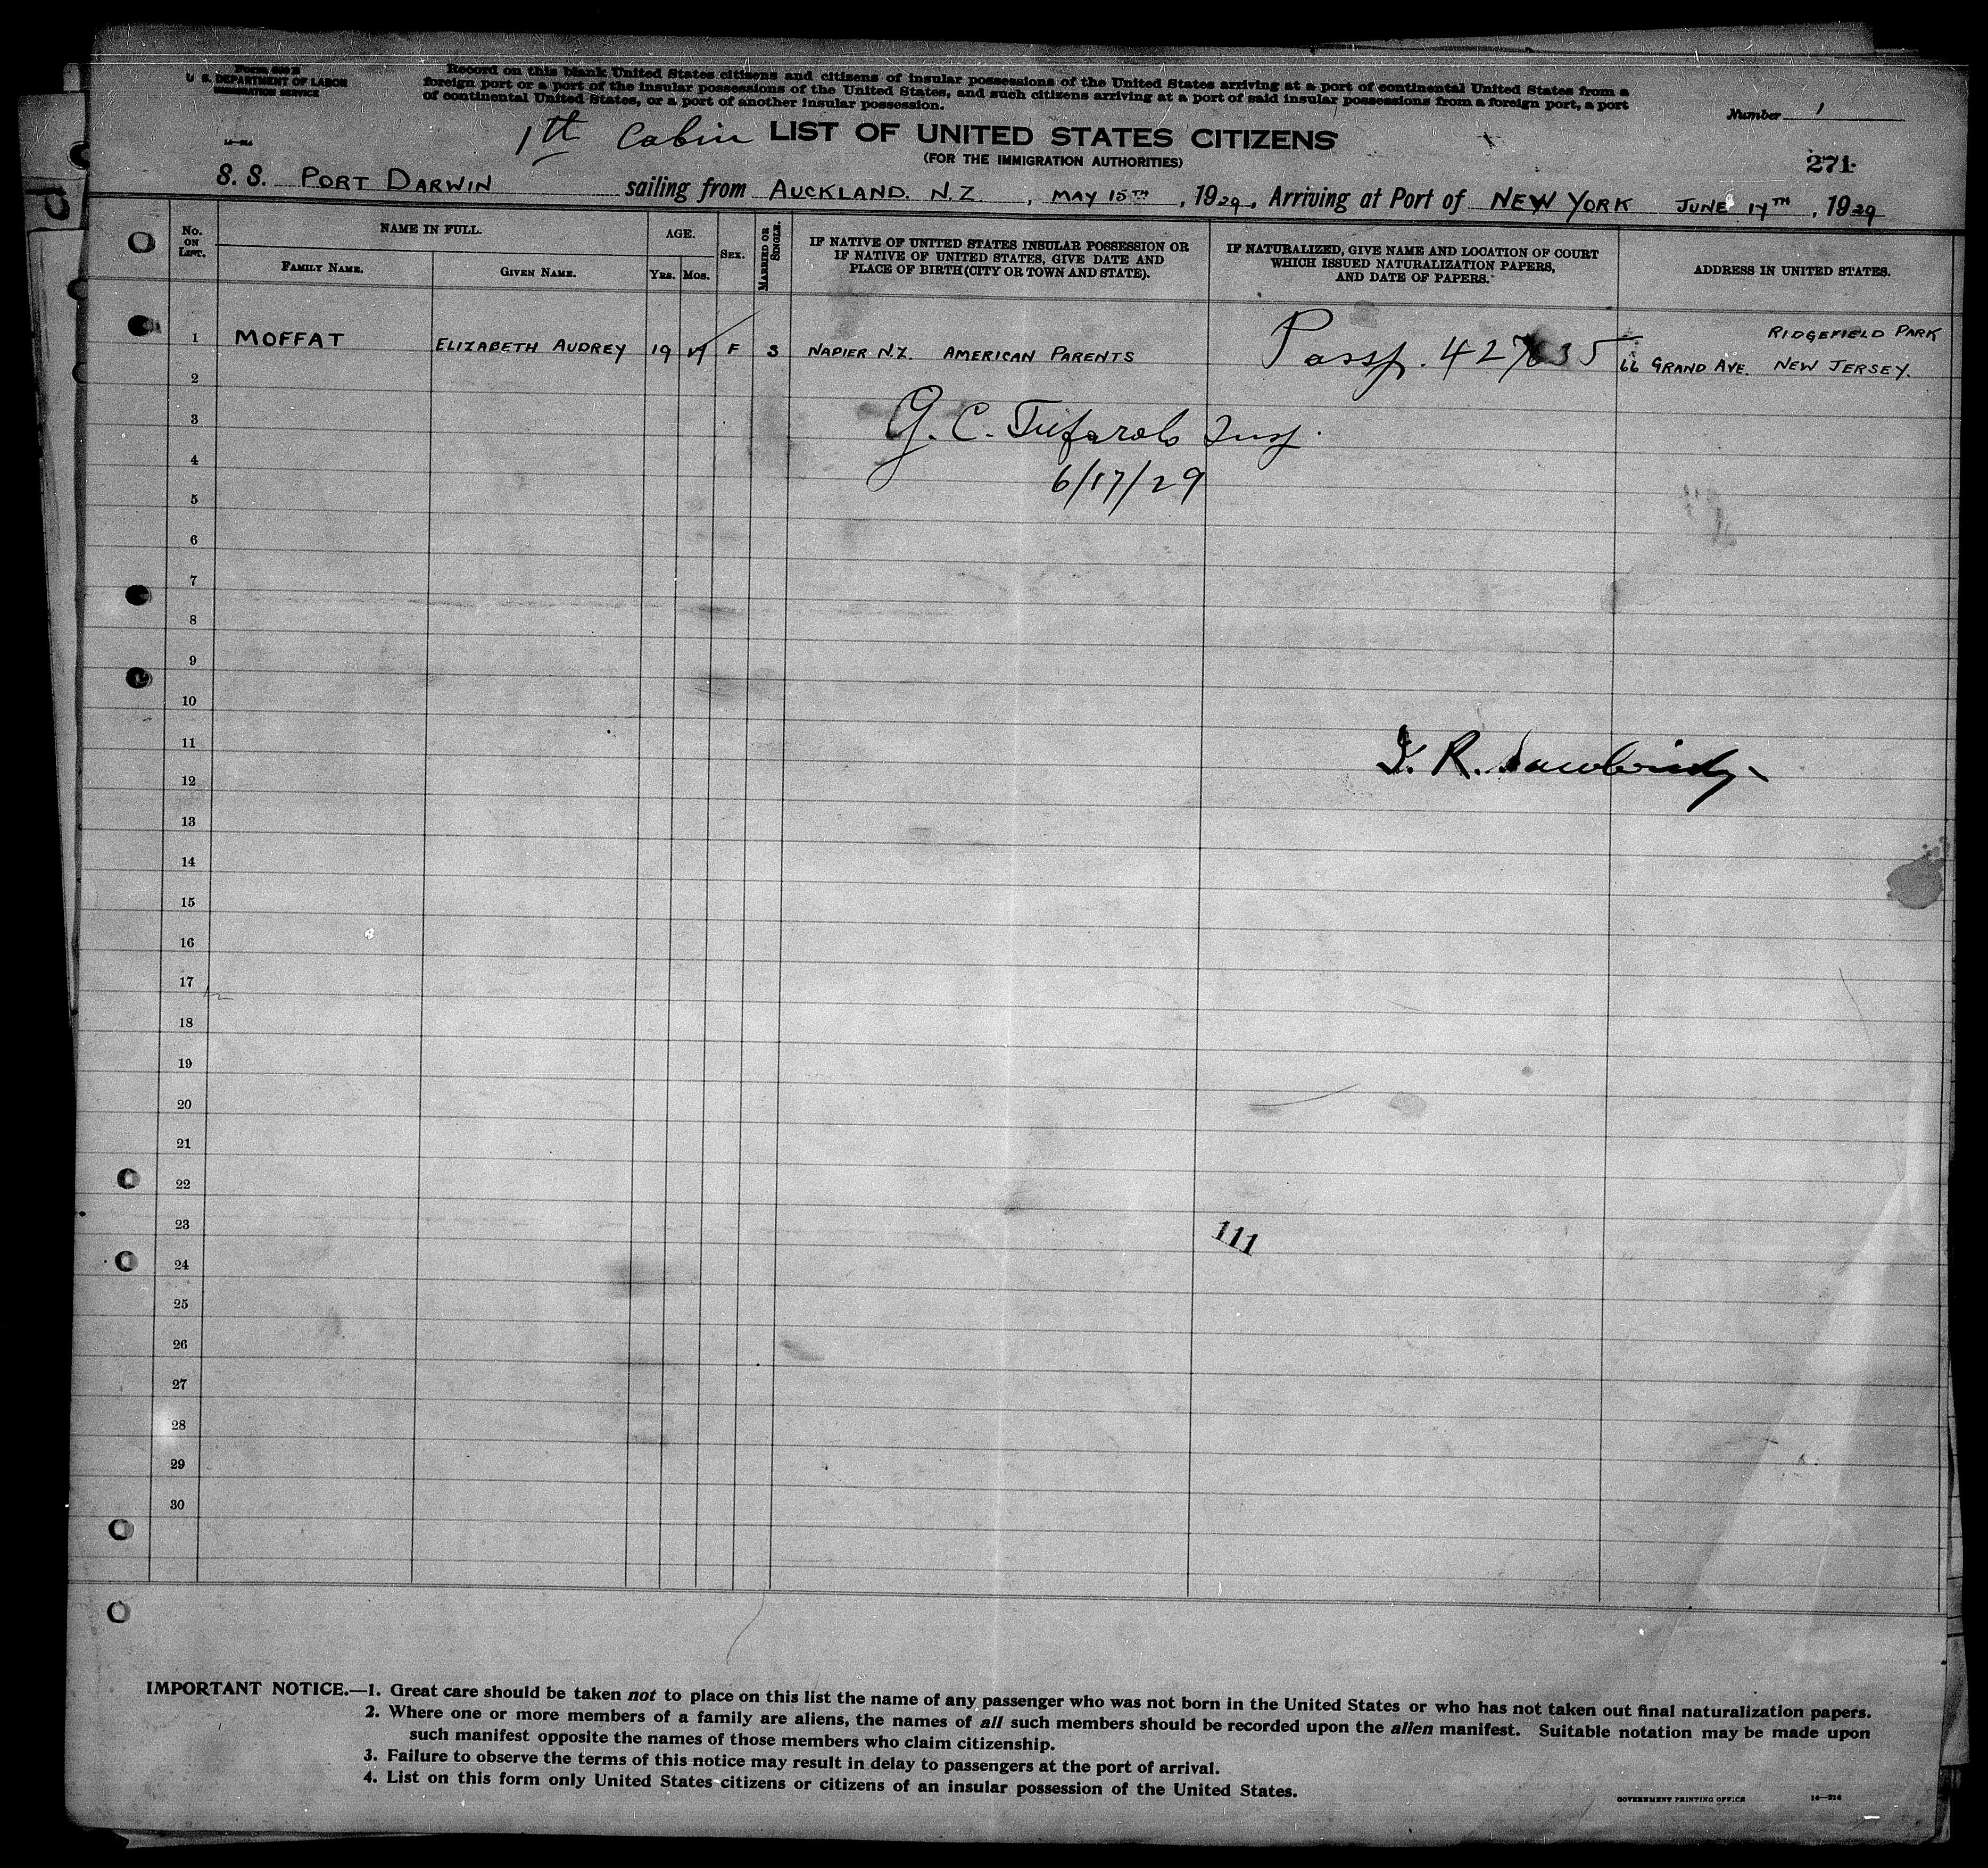 U. S. DEPARTMENT OF LABOR
IMMIGRATION SERVICE
Record on this blank United States citizens and citizens of insular possessions of the United States arriving at a port of continental United States from a
foreign port or a port of the insular possessions of the United States, and such citizens arriving at a port of said insular possessions from a foreign port, a port
of continental United States, or a port of another insular possession.
Number 1
1th Cabin LIST OF UNITED STATES CITIZENS
(FOR THE IMMIGRATION AUTHORITIES)
271
S. S. PORT DARWIN sailing from AUCKLAND. N.Z., MAY 15TH, 1929, Arriving at Port of NEW YORK JUNE 17TH, 1929
No. ON LIST.
NAME IN FULL.
FAMILY NAME.
GIVEN NAME.
AGE.
YRS. MOS.
SEX.
MARRIED OR SINGLE.
IF NATIVE OF UNITED STATES INSULAR POSSESSION OR
IF NATIVE OF UNITED STATES, GIVE DATE AND
PLACE OF BIRTH (CITY OR TOWN AND STATE).
IF NATURALIZED, GIVE NAME AND LOCATION OF COURT
WHICH ISSUED NATURALIZATION PAPERS,
AND DATE OF PAPERS.
ADDRESS IN UNITED STATES.
1 MOFFAT ELIZABETH AUDREY 19 F S NAPIER N.Z. AMERICAN PARENTS Passp. 66 GRAND AVE. RIDGEFIELD PARK
NEW JERSEY.
2
3 G. C. Insp.
4
6/17/29
5
6
7
8
9
10
11
I. R.
12
13
14
15
16
17
18
19
20
21
22
23
111
24
25
26
27
28
29
30
IMPORTANT NOTICE.—1. Great care should be taken not to place on this list the name of any passenger who was not born in the United States or who has not taken out final naturalization papers.
2. Where one or more members of a family are aliens, the names of all such members should be recorded upon the alien manifest. Suitable notation may be made upon
such manifest opposite the names of those members who claim citizenship.
3. Failure to observe the terms of this notice may result in delay to passengers at the port of arrival.
4. List on this form only United States citizens or citizens of an insular possession of the United States.
GOVERNMENT PRINTING OFFICE 14—214